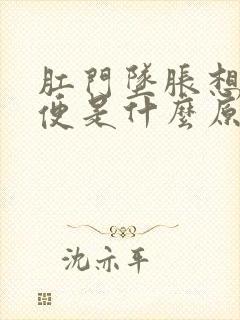 肛門墜脹想
便是什麼原
沈亦平